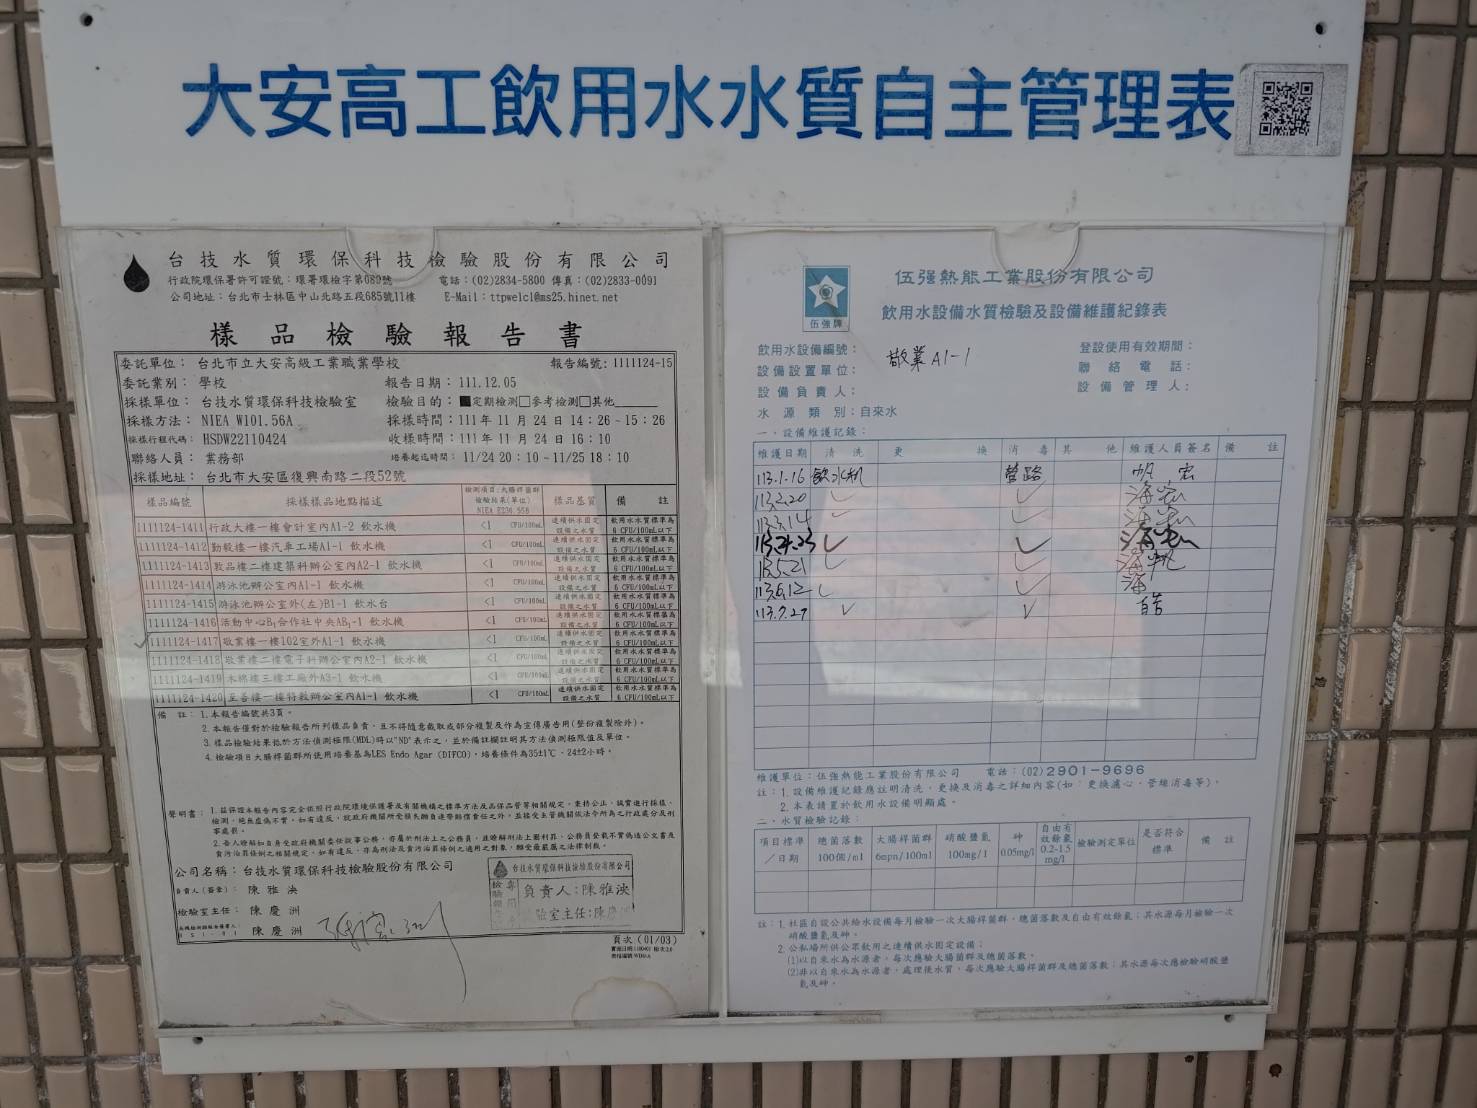 大安高工飲用水水質自主管理表
台技水質環保科技檢驗股份有限公司
行政院環保署許可證號：環署環檢字第089號 電話：(02)2834-5800 傳真：(02)2833-0091
公司地址：台北市士林區中山北路五段685號11樓 E-Mail：ttpwelcl@ms25.hinet.net
樣品檢驗報告書
委託單位：台北市立大安高級工業職業學校 報告編號：1111124-15
委託業別：學校 報告日期：111.12.05
採樣單位：台技水質環保科技檢驗室 檢驗目的：■定期檢測□參考檢測□其他
採樣方法：NIEA W101.56A 採樣時間：111年 11月 24日 14：26～15：26
採樣行程代碼：HSDW22110424 收樣時間：111年 11月 24日 16：10
聯絡人員：業務部 培養起迄時間：11/24 20：10～11/25 18：10
採樣地址：台北市大安區復興南路二段52號
樣品編號 採樣樣品地點描述 檢測項目:大腸桿菌群 檢驗結果(單位) NIEA E230.55B 樣品基質 備 註
1111124-1411 行政大樓一樓會計室內A1-2 飲水機 <1 CFU/100mL 連續供水固定設備之水質 飲用水水質標準為6 CFU/100mL以下
1111124-1412 勤毅樓一樓汽車工場A1-1 飲水機 <1 CFU/100mL 連續供水固定設備之水質 飲用水水質標準為6 CFU/100mL以下
1111124-1413 敦品樓二樓建築科辦公室內A2-1 飲水機 <1 CFU/100mL 連續供水固定設備之水質 飲用水水質標準為6 CFU/100mL以下
1111124-1414 游泳池辦公室內A1-1 飲水機 <1 CFU/100mL 連續供水固定設備之水質 飲用水水質標準為6 CFU/100mL以下
1111124-1415 游泳池辦公室外(左)B1-1 飲水台 <1 CFU/100mL 連續供水固定設備之水質 飲用水水質標準為6 CFU/100mL以下
1111124-1416 活動中心B1合作社中央AB1-1 飲水機 <1 CFU/100mL 連續供水固定設備之水質 飲用水水質標準為6 CFU/100mL以下
1111124-1417 敬業樓一樓102室外A1-1 飲水機 <1 CFU/100mL 連續供水固定設備之水質 飲用水水質標準為6 CFU/100mL以下
1111124-1418 敬業樓二樓電子科辦公室內A2-1 飲水機 <1 CFU/100mL 連續供水固定設備之水質 飲用水水質標準為6 CFU/100mL以下
1111124-1419 木棉樓三樓工廠外A3-1 飲水機 <1 CFU/100mL 連續供水固定設備之水質 飲用水水質標準為6 CFU/100mL以下
1111124-1420 至善樓一樓特教辦公室內A1-1 飲水機 <1 CFU/100mL 連續供水固定設備之水質 飲用水水質標準為6 CFU/100mL以下
備 註：1.本報告編號共3頁。
2.本報告僅對於檢驗報告所列樣品負責，且不得隨意截取或部分複製及作為宣傳廣告用(整份複製除外)。
3.樣品檢驗結果低於方法偵測極限(MDL)時以"ND"表示之，並於備註欄註明其方法偵測極限值及單位。
4.檢驗項目大腸桿菌群所使用培養基為LES Endo Agar (DIFCO)，培養條件為35±1℃、24±2小時。
公司名稱：台技水質環保科技檢驗股份有限公司
負責人(簽章)：陳雅泱
檢驗室主任：陳慶洲
陳慶洲
台技水質環保科技檢驗股份有限公司
負責人：陳雅泱
驗室主任：陳慶洲
頁次 (01/03)
伍強牌
伍強熱能工業股份有限公司
飲用水設備水質檢驗及設備維護紀錄表
飲用水設備編號： 登設使用有效期間：
敬業 A1-1
設備設置單位： 聯絡電話：
設備負責人： 設備管理人：
水源類別：自來水
一、設備維護記錄：
維護日期 清洗 更換 消毒 其他 維護人員簽名 備註
113.1.16 飲水机 管路
113.2.20 ✓ ✓
113.3.14 ✓ ✓
✓ ✓
113.5.21 ✓ ✓
113.6.12 ✓ ✓
113.7.27 ✓ ✓
維護單位：伍強熱能工業股份有限公司 電話：(02)2901-9696
註：1.設備維護記錄應註明清洗、更換及消毒之詳細內容(如：更換濾心、管線消毒等)。
2.本表請置於飲用水設備明顯處。
二、水質檢驗記錄：
項目標準／日期 總菌落數 100個/ml 大腸桿菌群 6mpn/100ml 硝酸鹽氮 100mg/l 砷 0.05mg/l 自由有效餘氯 0.2-1.5 mg/l 檢驗測定單位 是否符合標準 備註
註：1.社區自設公共給水設備每月檢驗一次大腸桿菌群、總菌落數及自由有效餘氯；其水源每次檢驗一次
硝酸鹽氮及砷。
2.公私場所供公眾飲用之連續供水固定設備：
(1)以自來水為水源者，每次應驗大腸菌群及總菌落數。
(2)非以自來水為水源者，處理後水質，每次應驗大腸桿菌群及總菌落數；其水源每次應檢驗硝酸鹽
氮及砷。